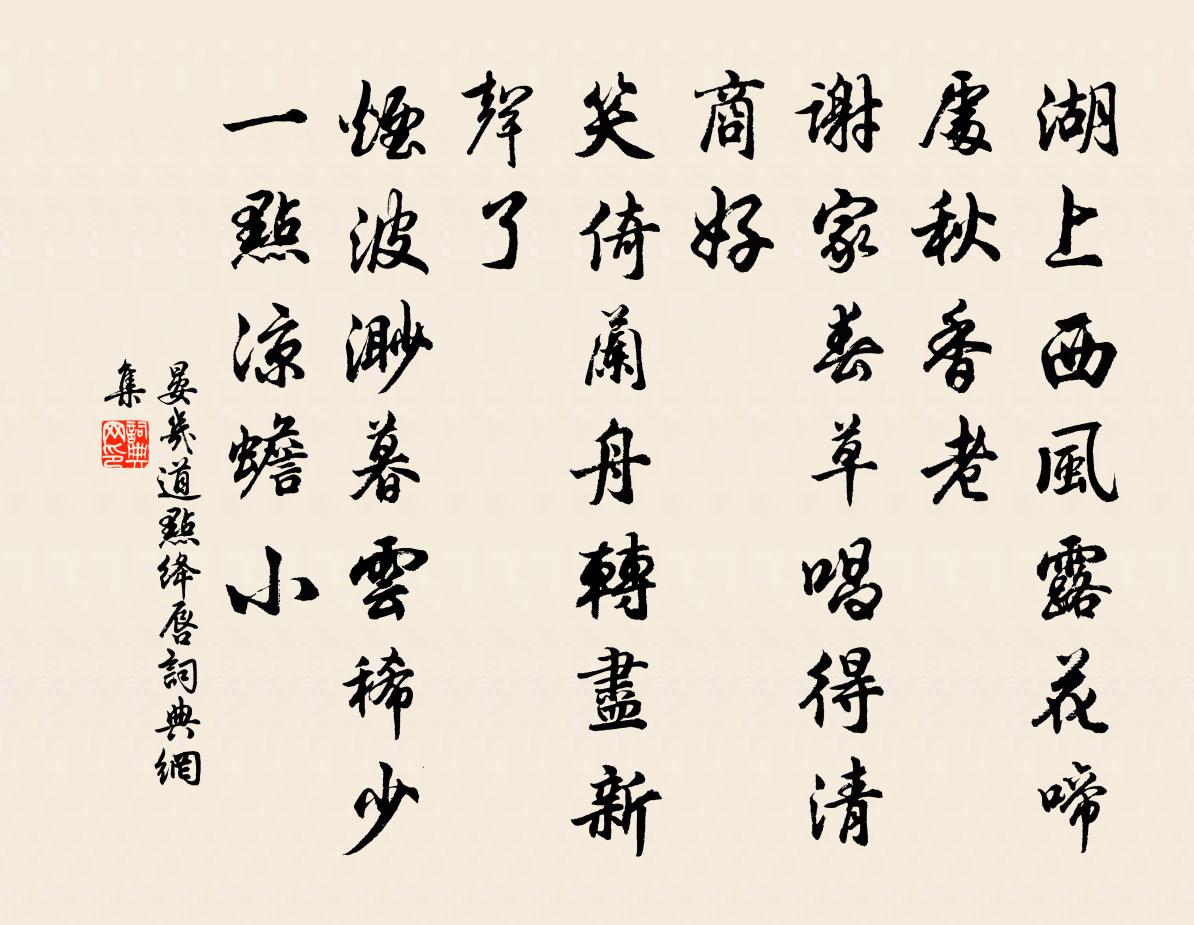 湖上西風露花啼
處秋香老
謝家春草唱得清
商好
笑倚蘭舟轉盡新
聲了
煙波渺暮雲稀少
一點涼蟾小
晏幾道點絳唇詞典網
集
詞典網印